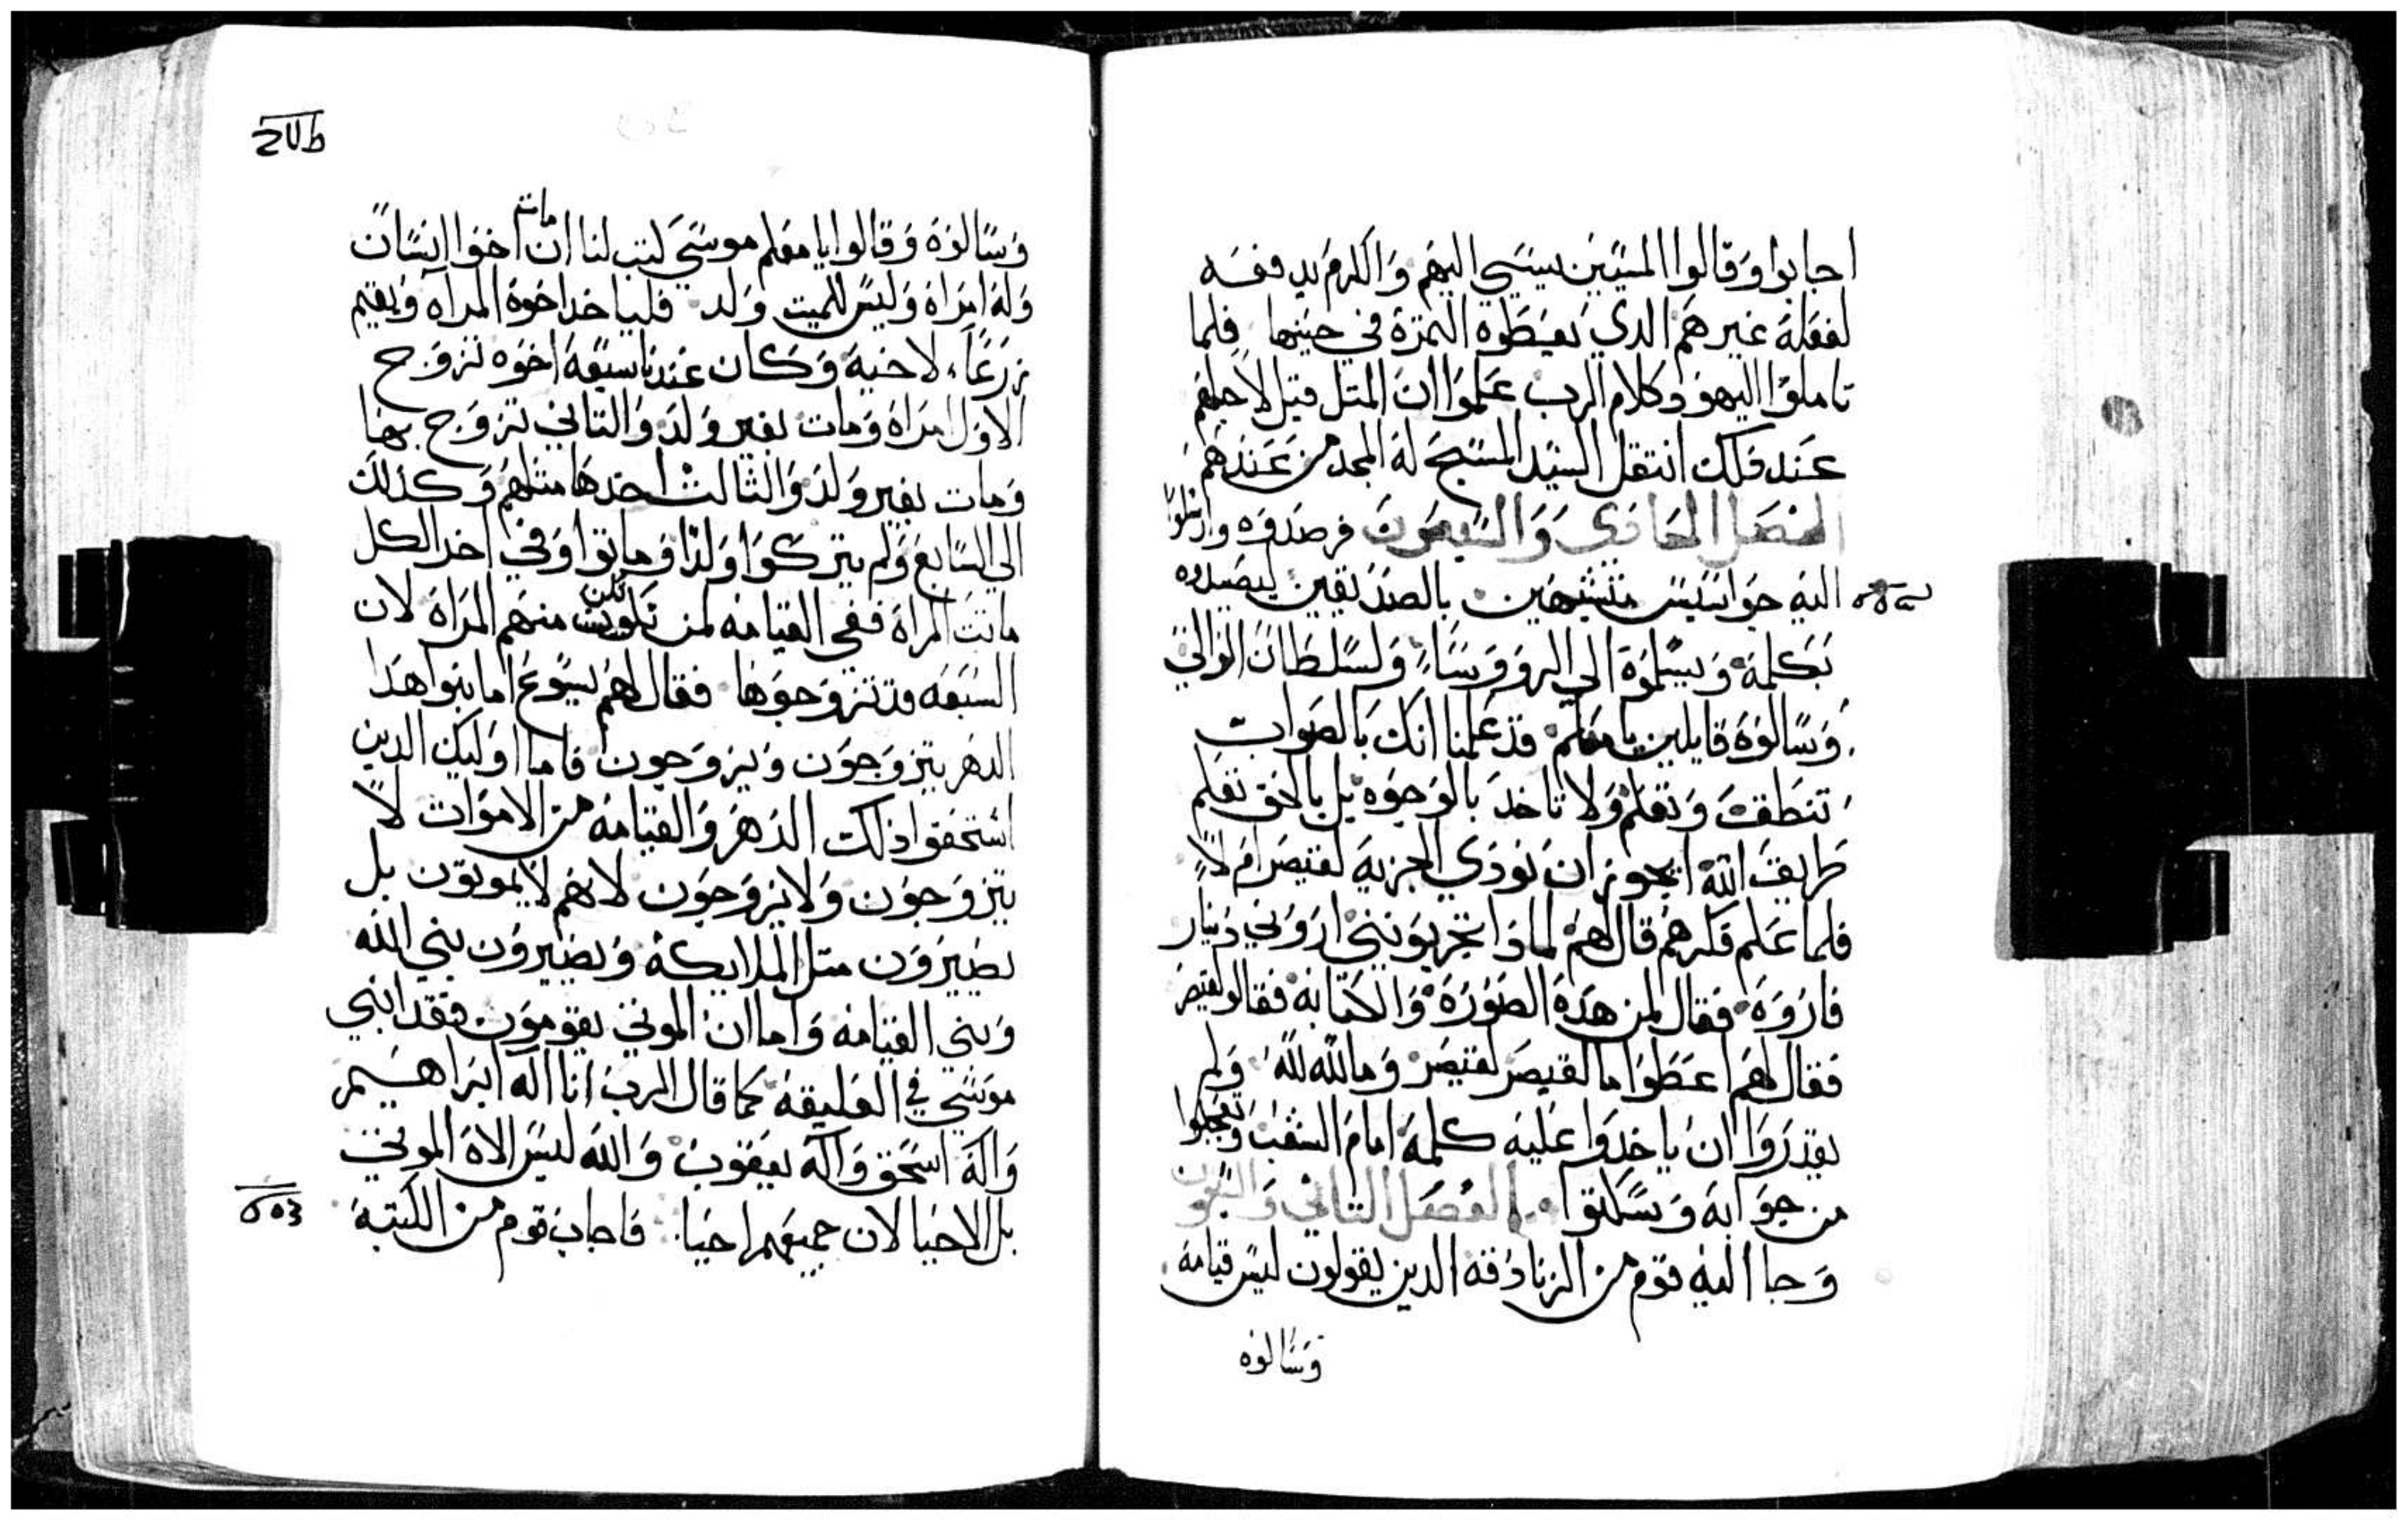 اجابوا وقالوا المسيين يسيي اليهم والكرم يدفعه
لفعلة غيرهم الدي يعطوه التمرة في حينها فلما
تاملوا اليهود كلام الرب علموا ان المتل قيل لاجلهم
عند دلك انتقل السيد المسيح له المجد من عندهم
الفصل الحادي والسبعون فرصدوه وارسلوا
اليه جواسيس متشبهين بالصديقين ليصيدوه
بكلمة ويسلموه الي الرووساء ولسلطان الوالي
وسالوه قايلين يا معلم قد علمنا انك بالصواب
تنطق وتعلم ولا تاخد بالوجوه بل بالحق تعلم
طريق الله ايجوز ان نودي الجزية لقيصر ام لا
فلما علم فكرهم قال لهم لمادا تجربونني اروني دينار
فاروه فقال لمن هده الصورة والكتابة فقالو لقيصر
فقال لهم اعطوا ما لقيصر لقيصر وما لله لله ولم
يقدروا ان ياخدوا عليه كلمة امام الشعب وتعجبوا
من جوابه وسكتوا الفصل التاني والسبعون
وجا اليه قوم من الزنادقة الدين يقولون ليس قيامة
وسالوه
وسالوه وقالوا يا معلم موسي كتب لنا ان مات اخوا انسان
وله امراة وليس للميت ولد فلياخد اخوه المراه ويقيم
زرعا لاخيه وكان عندنا سبعة اخوه تزوج
الاول امراة ومات بغير ولد والتاني تزوج بها
ومات بغير ولد والثالث اخدها متلهم وكدلك
الي السابع ولم يتركوا ولدا وماتوا وفي اخر الكل
ماتت المراة ففي القيامة لمن تكون منهم المراة لان
السبعة قد تزوجوها فقال لهم يسوع اما بنوا هدا
الدهر يتزوجون ويزوجون فاما اوليك الدين
استحقوا دلك الدهر والقيامة من الاموات لا
يتزوجون ولا يزوجون لانهم لا يموتون بل
يصيرون متل الملايكة ويصيرون بني الله
وبني القيامة واما ان الموتي يقومون فقد انبي
موسي في العليقة كما قال الرب انا اله ابراهيم
واله اسحق واله يعقوب والله ليس الاه الموتي
بل الاحيا لان جميعهم احيا فاجاب قوم من الكتبة